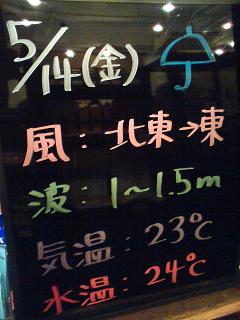 5/14(金)
風:北東→東
波:1~1.5m
気温:23℃
水温:24℃